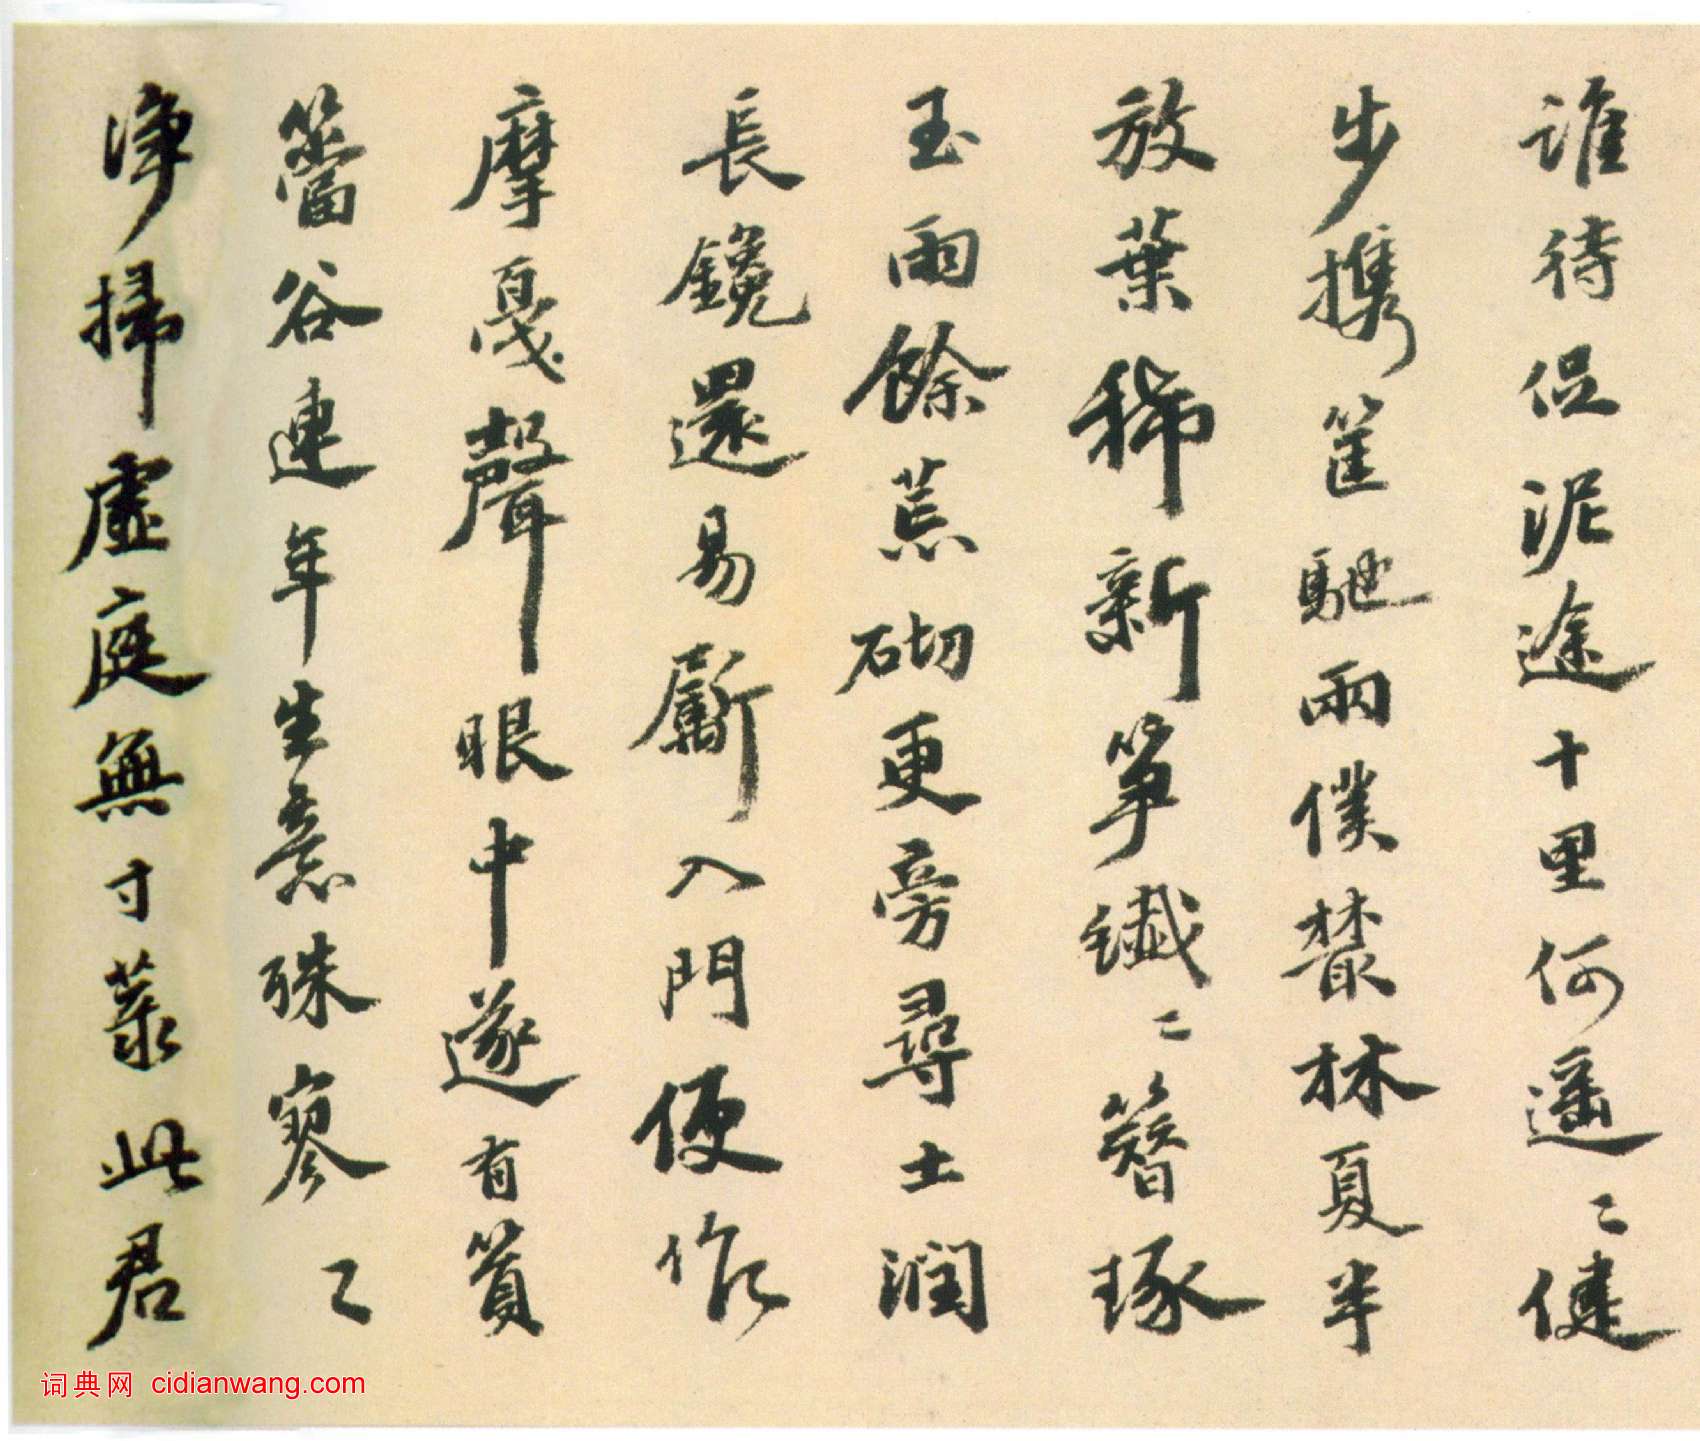 誰待促泥途十里何遥〻健
步携筐馳兩僕叢林夏半
放葉稀新筝纖〻簪琢
玉雨餘荒砌更旁尋土潤
長鑱還易斸入門便作
摩戛聲眼中遂有篔
簹谷連年生意殊寥〻
淨掃虛庭無寸菉此君
词典网 cidianwang.com